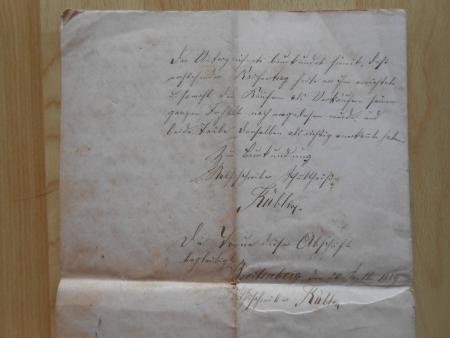 Der Unterzeichnete beurkundet hiemit, daß
vorstehender Kaufvertrag heute vor ihm errichtet
u. sowohl dem Käufer als Verkäufer seinem
ganzen Inhalt nach vorgelesen wurde, und
beide Theile denselben als richtig anerkannt haben.
Zur Beurkundung
Rathschreiber
Kübler.
Die Treue dieser Abschrift
beglaubigt
den
Rathschreiber Kübler